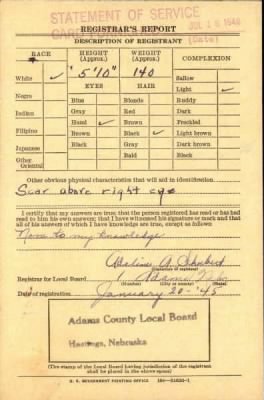 STATEMENT OF SERVICE
JUL 1946
REGISTRAR'S REPORT
(Date)
DESCRIPTION OF REGISTRANT
RACE HEIGHT (Approx.) WEIGHT (Approx.) COMPLEXION
White ✓ 5'10" 140 Sallow
EYES HAIR Light ✓
Negro Blue Blonde Ruddy
Indian Gray Red Dark
Filipino Hazel ✓ Brown Freckled
Japanese Brown Black ✓ Light brown
Other Oriental Black Gray Dark brown
Bald Black
Other obvious physical characteristics that will aid in identification
Scar above right eye
I certify that my answers are true; that the person registered has read or has had
read to him his own answers; that I have witnessed his signature or mark and that
all of his answers of which I have knowledge are true, except as follows:
None to my knowledge
Adeline A.
(Signature of registrar)
Registrar for Local Board 1 Adams Nebr
(Number) (City or county) (State)
Date of registration January 20-'45
Adams County Local Board
Hastings, Nebraska
(The stamp of the Local Board having jurisdiction of the registrant
shall be placed in the above space)
U. S. GOVERNMENT PRINTING OFFICE